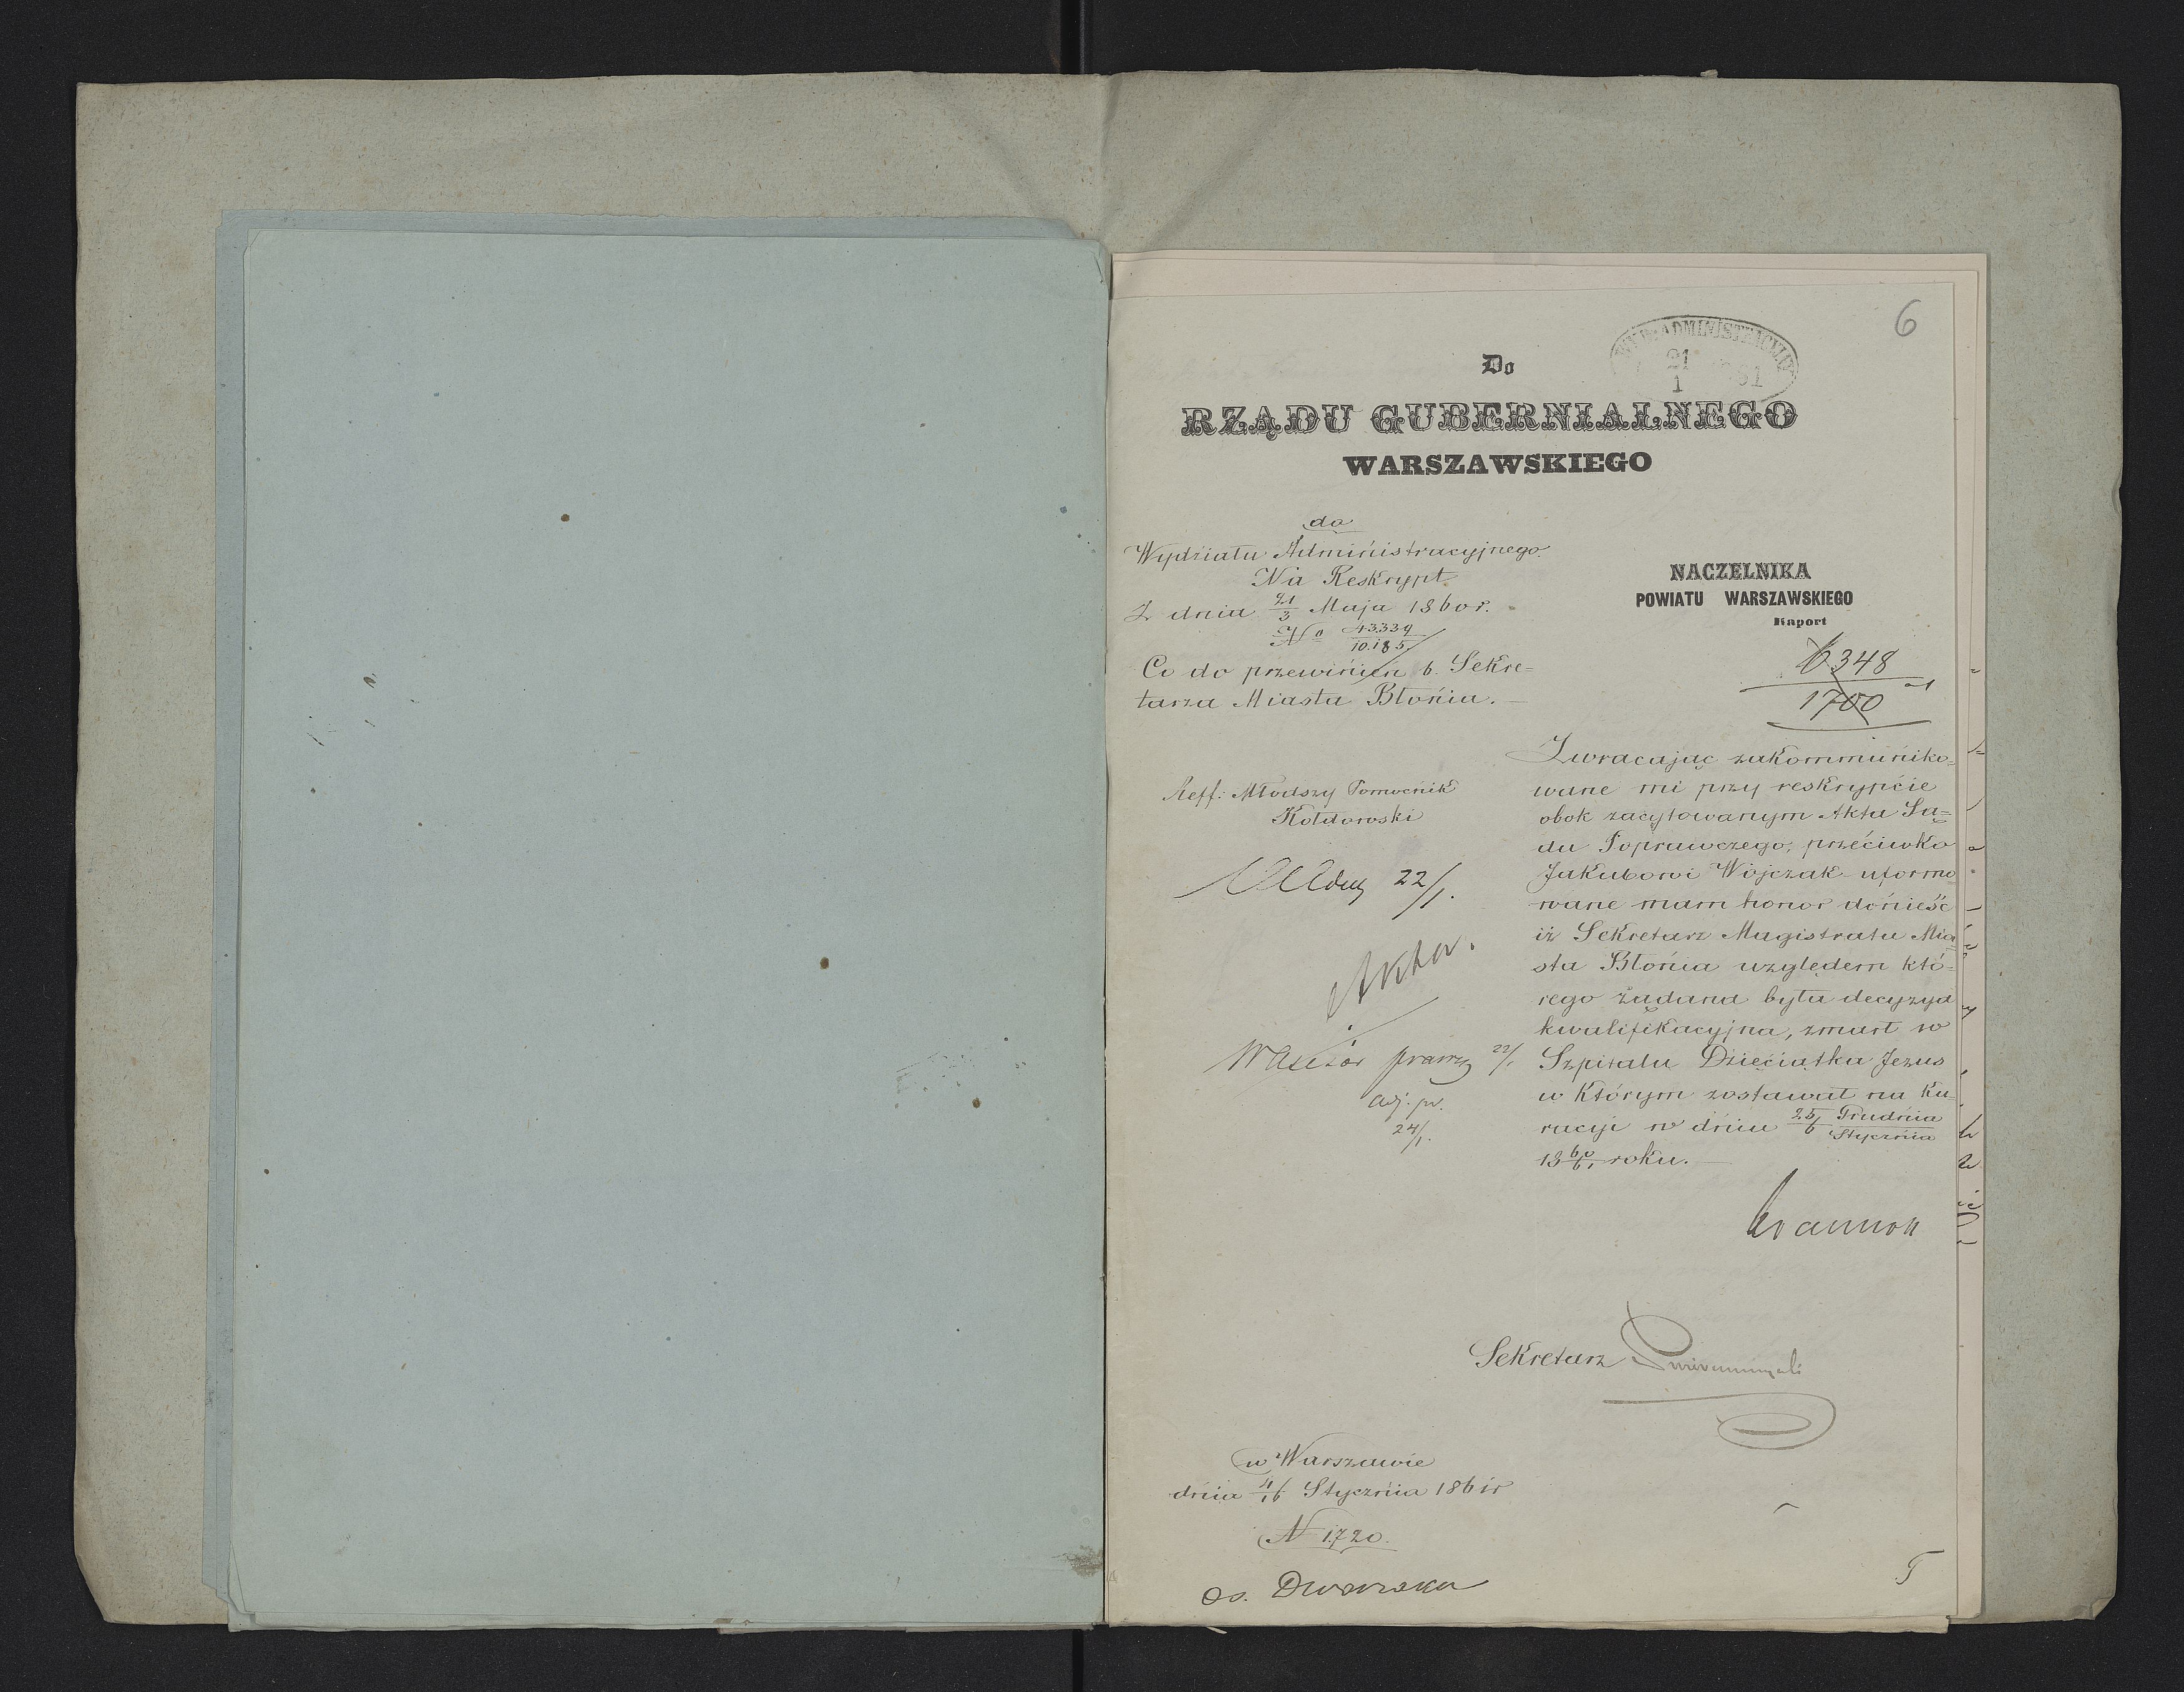 6
WYD. ADMINISTRACYJNY
21
1
Do
RZĄDU GUBERNIALNEGO
WARSZAWSKIEGO
do
Wydziału Administracyjnego
Na Reskrypt
Z dnia 21/3 Maja 1860 r.
No 43339/10.185
Co do przewinień b. Sekre=
tarza Miasta Błonia.
NACZELNIKA
POWIATU WARSZAWSKIEGO
Raport
6348
1700
Reff: Młodszy Pomocnik
Kołdowski
22/1.
Akta.
22/1
adj. pr.
24/1.
Zwracając zakommuniko=
wane mi przy reskrypcie
obok zacytowanym Akta Są=
du Poprawczego, przeciwko
Jakubowi Wójczak uformo
wane mam honor donieść
iż Sekretarz Magistratu Mia
sta Błonia względem któ=
rego żądana była decyzya
kwalifikacyjna, zmarł w
Szpitalu Dzieciątka Jezus
w którym zostawał na ku=
racyi w dniu 25/6 Grudnia/Stycznia
1860/61 roku.
Sekretarz
w Warszawie
dnia 4/16 Stycznia 1861 r
N 1720.